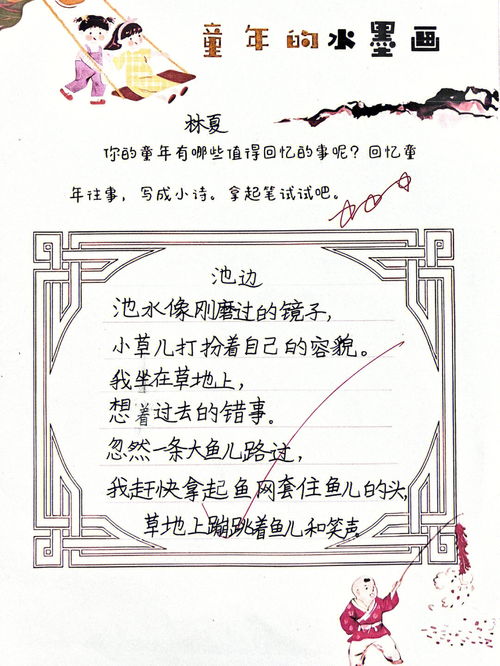 童年的水墨画
林夏
你的童年有哪些值得回忆的事呢？回忆童
年往事，写成小诗。拿起笔试试吧。
池边
池水像刚磨过的镜子，
小草儿打扮着自己的容貌。
我坐在草地上，
想着过去的错事。
忽然一条大鱼儿路过，
我赶快拿起鱼网套住鱼儿的头，
草地上蹦跳着鱼儿和笑声。